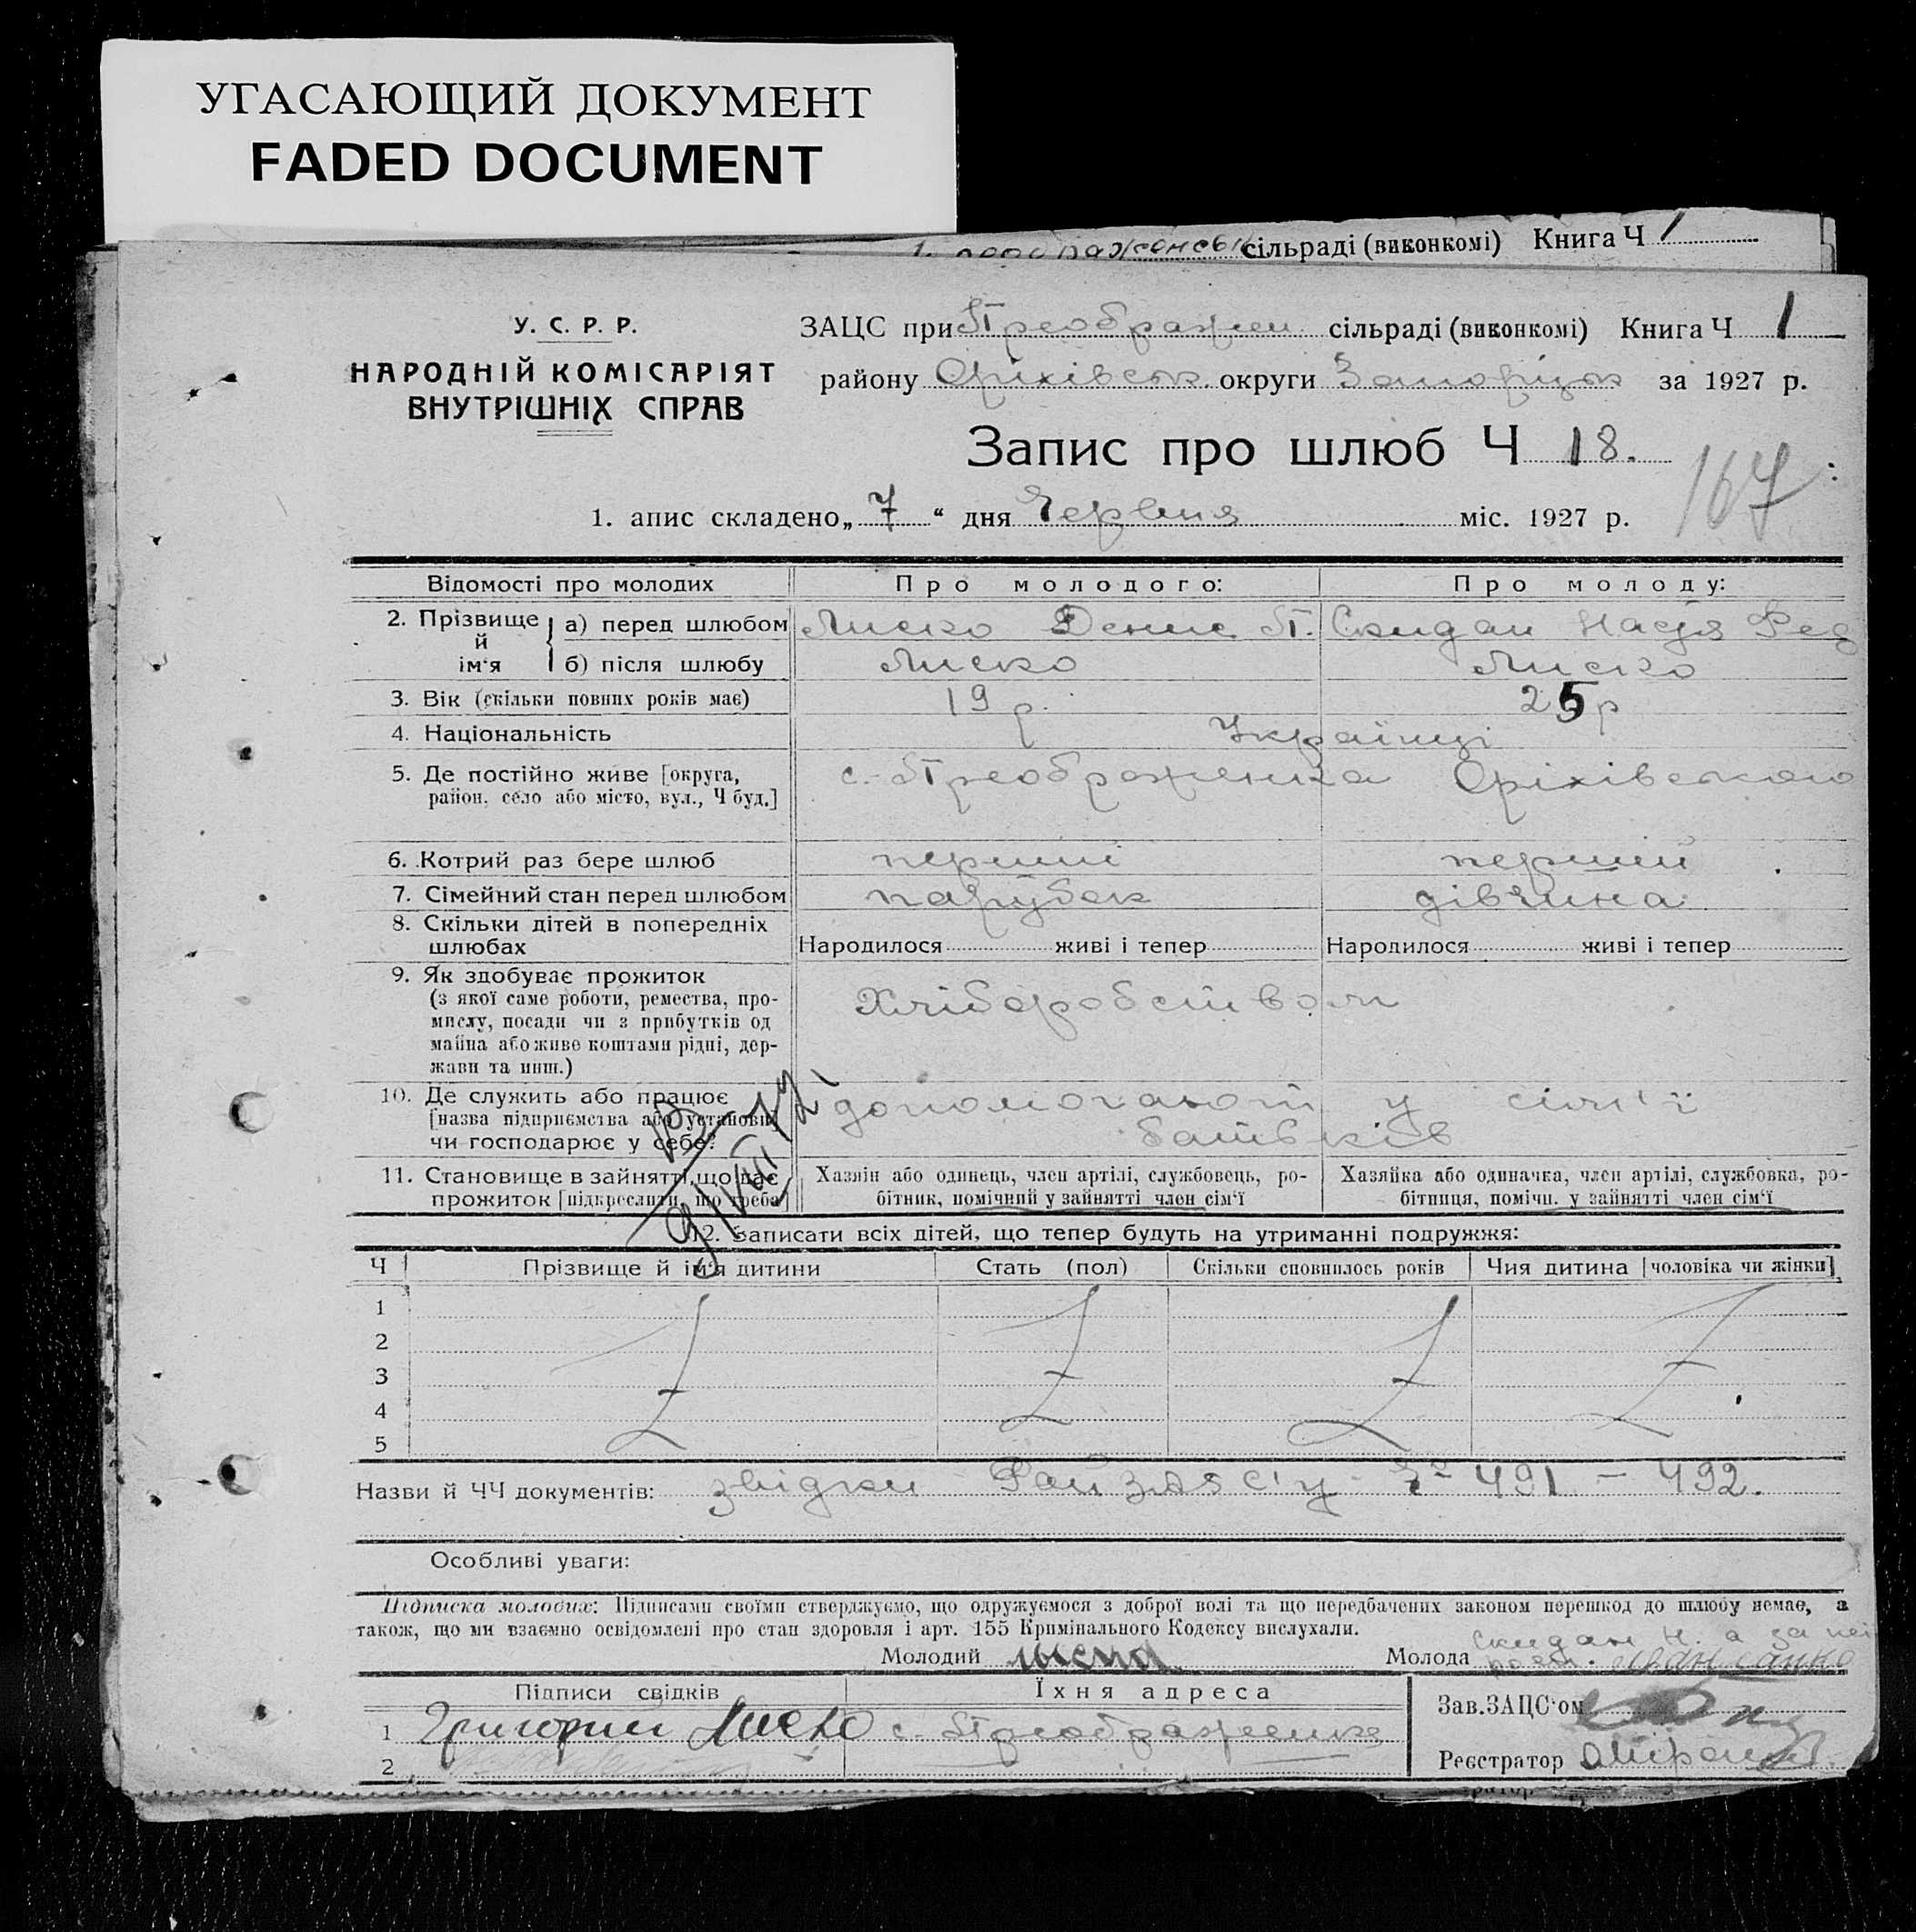 УГАСАЮЩИЙ ДОКУМЕНТ
FADED DOCUMENT
сільраді (виконкомі) Книга Ч 1
У. С. Р. Р.
НАРОДНІЙ КОМІСАРІЯТ
ВНУТРІШНІХ СПРАВ
ЗАЦС при Преображен. сільраді (виконкомі) Книга Ч 1
району Оріхівськ. округи Запоріцьк за 1927 р.
Запис про шлюб Ч 18.
167
1. апис складено „7“ дня Червня міс. 1927 р.
Відомості про молодих Про молодого: Про молоду:
2. Прізвище й ім'я а) перед шлюбом Лиско Денис П. Скидан Настя Фед
б) після шлюбу Лиско Лиско
3. Вік (скільки повних років має) 19 р. 25 р
4. Національність Українці
5. Де постійно живе [округа, с. Преображенка Оріхівського
район, село або місто, вул., Ч буд.]
6. Котрий раз бере шлюб перший перший
7. Сімейний стан перед шлюбом парубок дівчина
8. Скільки дітей в попередніх
шлюбах Народилося живі і тепер Народилося живі і тепер
9. Як здобуває прожиток
(з якої саме роботи, ремества, про- Хліборобством
мислу, посади чи з прибутків од
майна або живе коштами рідні, дер-
жави та инш.)
10. Де служить або працює допомогают у сім'ї
[назва підприємства або установи] батьків
чи господарює у себе?
11. Становище в зайнятті, що дає Хазяїн або одинець, член артілі, службовець, ро- Хазяйка або одиначка, член артілі, службовка, ро-
прожиток [підкреслити, що треба] бітник, помічний у зайнятті член сім'ї бітниця, помічн. у зайнятті член сім'ї
12. Записати всіх дітей, що тепер будуть на утриманні подружжя:
Ч Прізвище й ім'я дитини Стать (пол) Скільки сповнилось років Чия дитина [чоловіка чи жінки]
1
2
3
4
5
Назви й ЧЧ документів: звідки РайЗАГС'у 491 – 492.
Особливі уваги:
Підписка молодих: Підписами своїми стверджуємо, що одружуємося з доброї волі та що передбачених законом перешкод до шлюбу немає, а
також, що ми взаємно освідомлені про стан здоровля і арт. 155 Кримінального Кодексу вислухали.
Скидан Н. а за неї
Молодий Молода
Підписи свідків Їхня адреса Зав.ЗАЦС'ом
1 Григорий Лиско с. Преображенка
2 Реєстратор